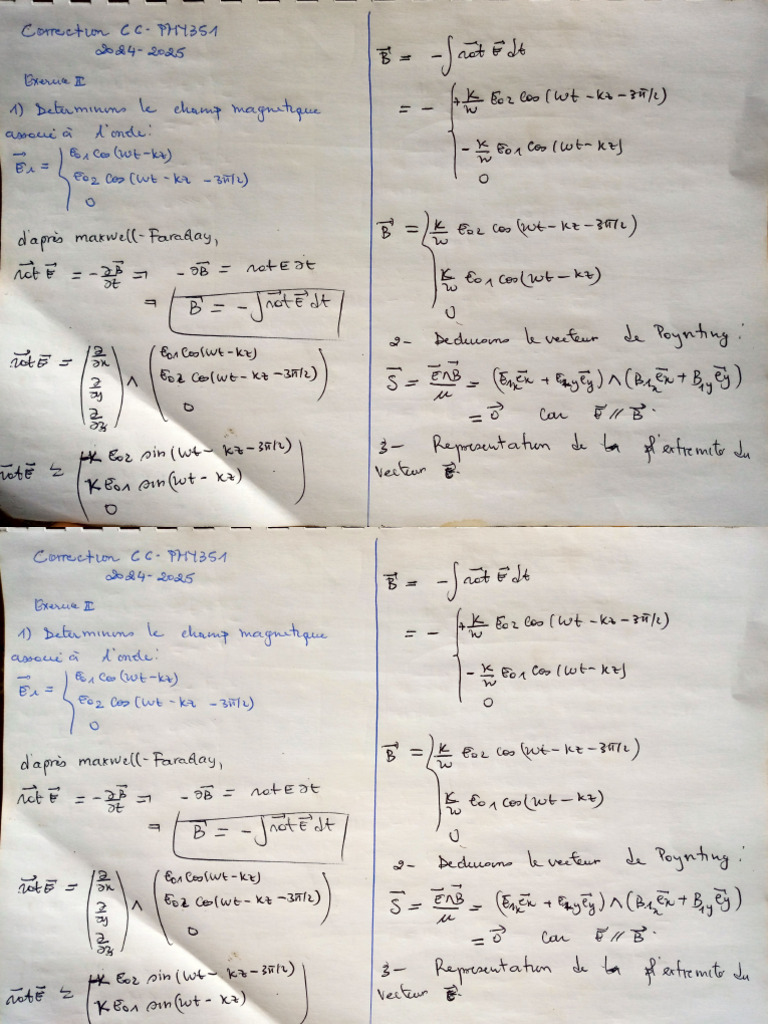 Correction CC-PHY351
2024-2025
Exercice II
1) Determinons le champ magnetique
associé à l'onde:
E⃗₁ = { E01 cos(wt-kz)
E02 cos(wt-kz-3π/2)
0
d'après maxwell-Faraday,
rot⃗ E⃗ = -∂B⃗/∂t ⇒ -∂B⃗ = rot E ∂t
⇒ B⃗ = -∫rot⃗ E⃗ dt
rot⃗ E⃗ = (∂/∂x ∂/∂y ∂/∂z) ∧ (E01 cos(wt-kz)
E02 cos(wt-kz-3π/2)
0)
rot⃗ E⃗ = (-k E02 sin(wt-kz-3π/2)
k E01 sin(wt-kz)
0)
B⃗ = -∫rot⃗ E⃗ dt
= - { +k/w E02 cos(wt-kz-3π/2)
-k/w E01 cos(wt-kz)
0
B⃗ = { k/w E02 cos(wt-kz-3π/2)
k/w E01 cos(wt-kz)
0
2- Deduisons le vecteur de Poynting:
S⃗ = E⃗∧B⃗/μ = (E1x e⃗x + E1y e⃗y) ∧ (B1x e⃗x + B1y e⃗y)
= 0⃗ car E⃗ // B⃗.
3- Representation de l'extremite du
vecteur E⃗.
Correction CC-PHY351
2024-2025
Exercice II
1) Determinons le champ magnetique
associé à l'onde:
E⃗₁ = { E01 cos(wt-kz)
E02 cos(wt-kz-3π/2)
0
d'après maxwell-Faraday,
rot⃗ E⃗ = -∂B⃗/∂t ⇒ -∂B⃗ = rot E ∂t
⇒ B⃗ = -∫rot⃗ E⃗ dt
rot⃗ E⃗ = (∂/∂x ∂/∂y ∂/∂z) ∧ (E01 cos(wt-kz)
E02 cos(wt-kz-3π/2)
0)
rot⃗ E⃗ = (-k E02 sin(wt-kz-3π/2)
k E01 sin(wt-kz)
B⃗ = -∫rot⃗ E⃗ dt
= - { +k/w E02 cos(wt-kz-3π/2)
-k/w E01 cos(wt-kz)
0
B⃗ = { k/w E02 cos(wt-kz-3π/2)
k/w E01 cos(wt-kz)
0
2- Deduisons le vecteur de Poynting:
S⃗ = E⃗∧B⃗/μ = (E1x e⃗x + E1y e⃗y) ∧ (B1x e⃗x + B1y e⃗y)
= 0⃗ car E⃗ // B⃗.
3- Representation de l'extremite du
vecteur E⃗.